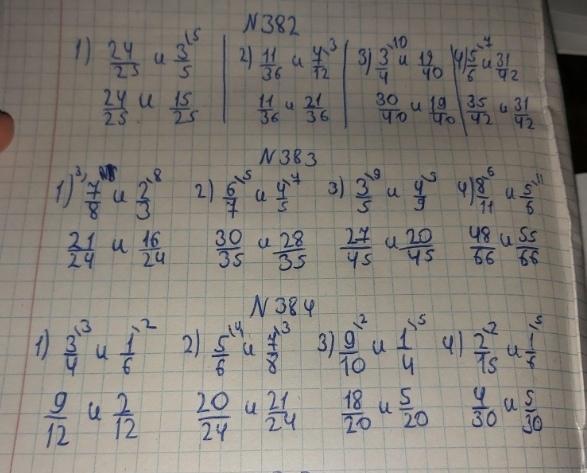 N 382
1) 24/25 и 3/5 \5 | 2) 11/36 и 7/12 \3 | 3) 3/4 \10 и 19/40 | 4) 5/6 \7 и 31/42
24/25 и 15/25 | 11/36 и 21/36 | 30/40 и 19/40 | 35/42 и 31/42
N 383
1) \3 7/8 и 2/3 \8 2) 6/7 \5 и 4/5 \7 3) 3/5 \9 и 4/9 \5 4) 8/11 \6 и 5/6 \11
21/24 и 16/24 30/35 и 28/35 27/45 и 20/45 48/66 и 55/66
N 384
1) 3/4 \3 и 1/6 \2 2) 5/6 \4 и 7/8 \3 3) 9/10 \2 и 1/4 \5 4) 2/15 \2 и 1/6 \5
9/12 и 2/12 20/24 и 21/24 18/20 и 5/20 4/30 и 5/30